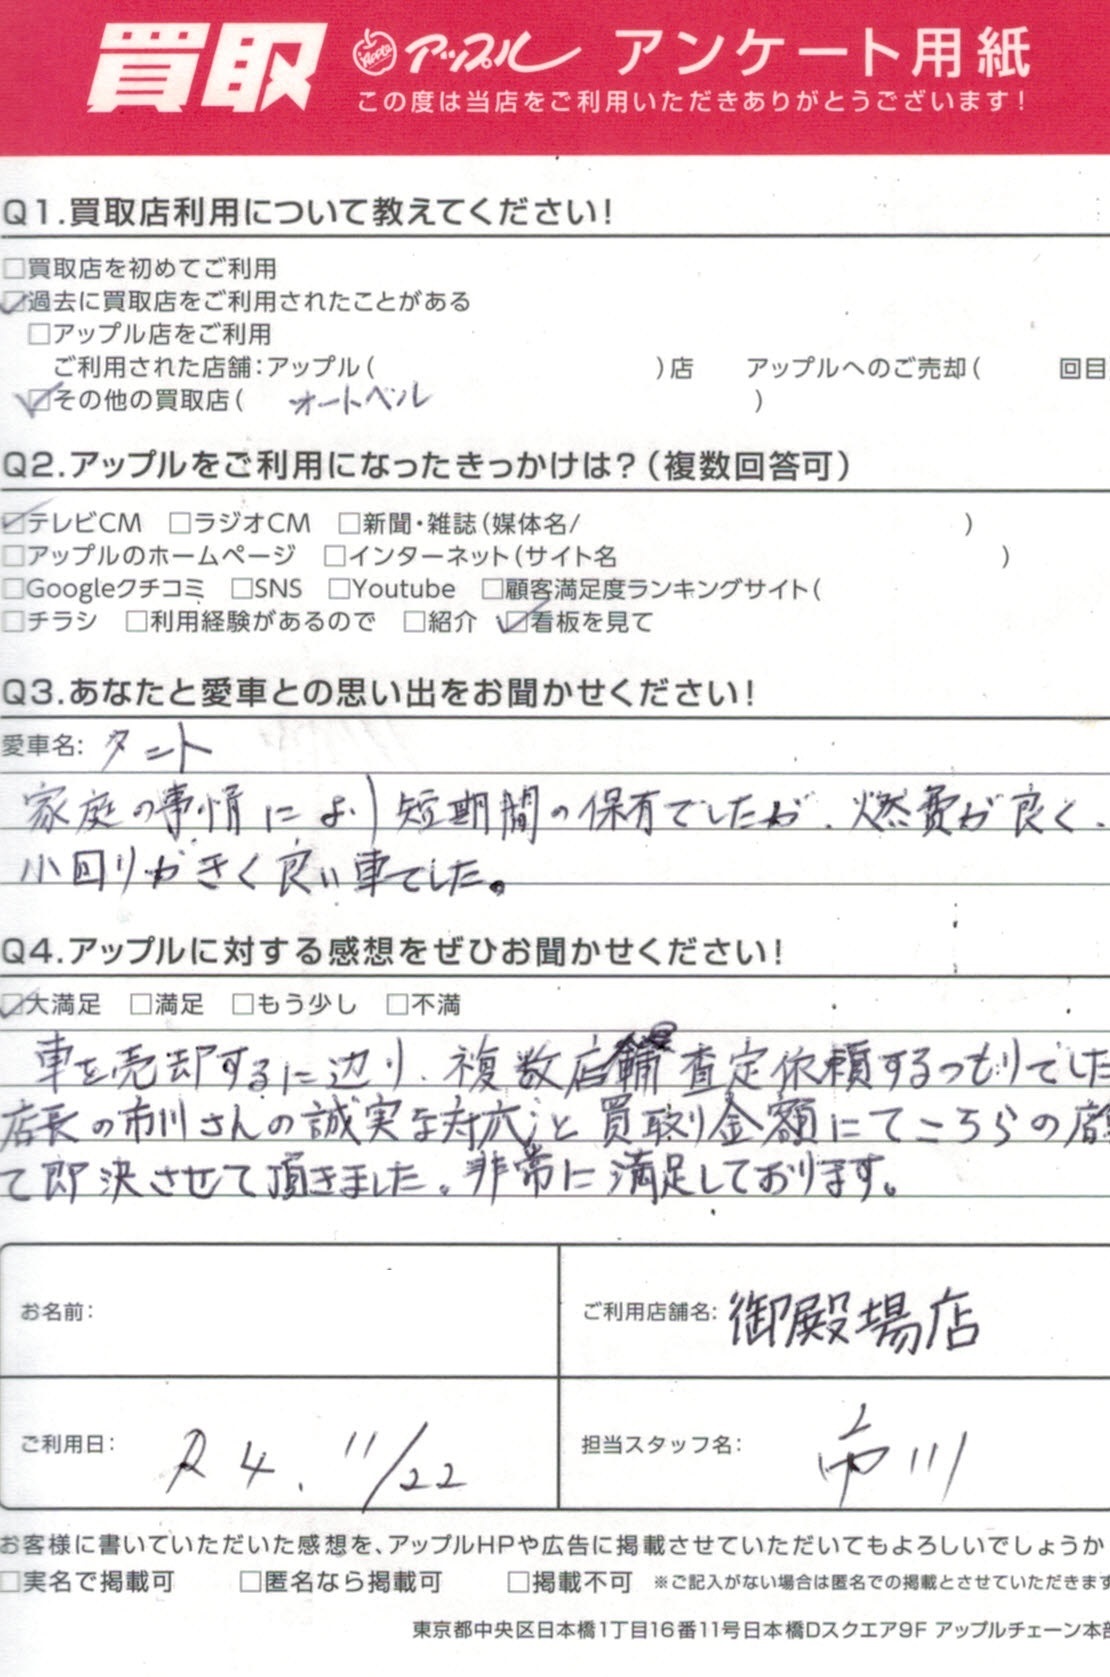 買取 Apple アップル アンケート用紙
この度は当店をご利用いただきありがとうございます!
Q1.買取店利用について教えてください!
□買取店を初めてご利用
☑過去に買取店をご利用されたことがある
□アップル店をご利用
ご利用された店舗:アップル( )店 アップルへのご売却( 回目
☑その他の買取店( オートベル )
Q2.アップルをご利用になったきっかけは?(複数回答可)
☑テレビCM □ラジオCM □新聞・雑誌(媒体名/ )
□アップルのホームページ □インターネット(サイト名 )
□Googleクチコミ □SNS □Youtube □顧客満足度ランキングサイト(
□チラシ □利用経験があるので □紹介 ☑看板を見て
Q3.あなたと愛車との思い出をお聞かせください!
愛車名: タント
家庭の事情により短期間の保有でしたが、燃費が良く、
小回りがきく良い車でした。
Q4.アップルに対する感想をぜひお聞かせください!
☑大満足 □満足 □もう少し □不満
車を売却するに辺り、複数店舗 査定依頼するつもりでした
店長の市川さんの誠実な対応と買取り金額にてこちらの店
て即決させて頂きました。非常に満足しております。
お名前:
ご利用店舗名: 御殿場店
ご利用日: R4. 11/22
担当スタッフ名: 市川
お客様に書いていただいた感想を、アップルHPや広告に掲載させていただいてもよろしいでしょうか
□実名で掲載可 □匿名なら掲載可 □掲載不可 ※ご記入がない場合は匿名での掲載とさせていただきます
東京都中央区日本橋1丁目16番11号日本橋Dスクエア9F アップルチェーン本部